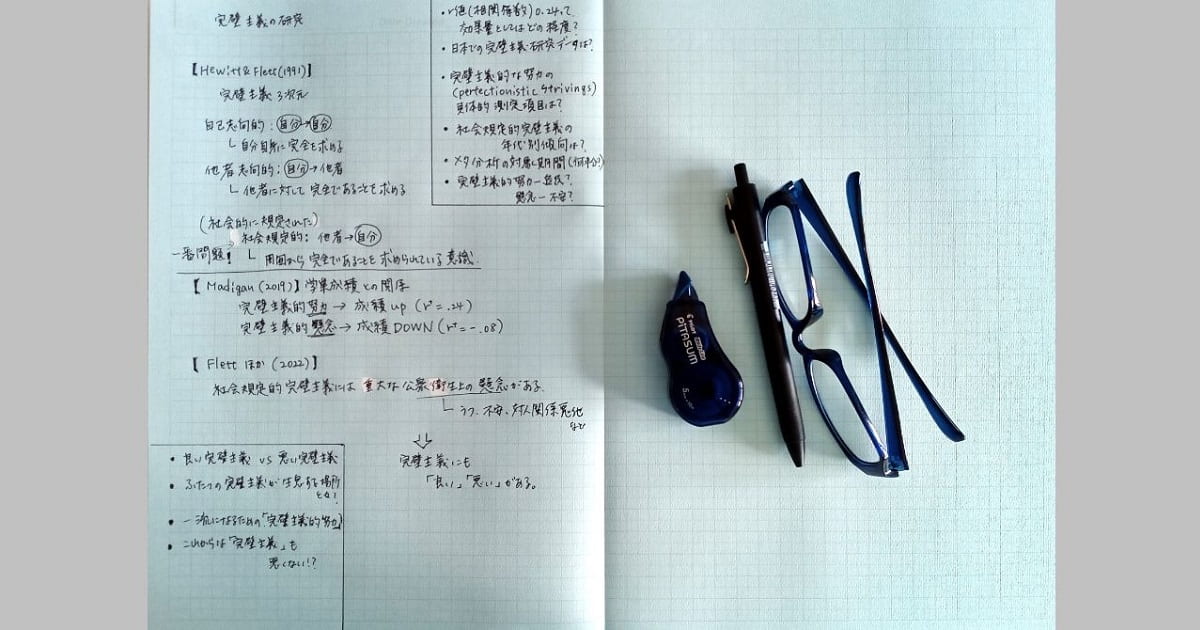 完璧主義の研究
【Hewitt & Flett(1991)】
完璧主義 3次元
自己志向的：自分→自分
└ 自分自身に完全を求める
他者志向的：自分→他者
└ 他者に対して完全であることを求める
(社会的に規定された)
社会規定的：他者→自分
一番問題!
└ 周囲から完全であることを求められている意識.
【Madigan(2019)】学業成績との関係
完璧主義的努力 → 成績up (r=.24)
完璧主義的懸念 → 成績DOWN (r=-.08)
【Flett ほか (2022)】
社会規定的完璧主義には 重大な公衆衛生上の懸念がある.
└ うつ、不安、対人関係悪化
など
⇩
完璧主義にも
「良い」「悪い」がある。
・r値(相関係数) 0.24って
効果量としてはどの程度?
・日本での完璧主義研究データは?
・完璧主義的な努力の
(perfectionistic strivings)
具体的測定項目は?
・社会規定的完璧主義の
年代別傾向は?
・メタ分析の対象期間(何年分?)
・完璧主義的努力ー
懸念ー不安?
・良い完璧主義 vs 悪い完璧主義
・ふたつの完璧主義が生息する場所
・一流になるための「完璧主義的努力」
・これからは「完璧主義」も
悪くない!?
PILOT
PiTASUM